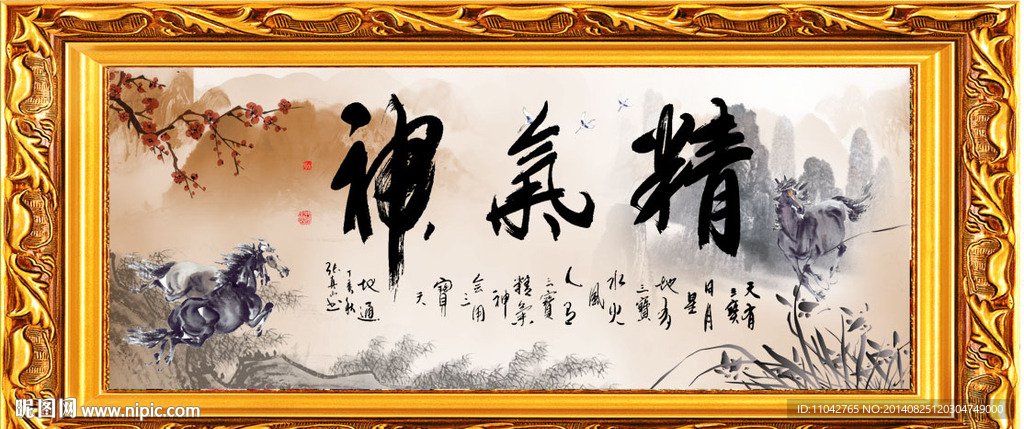 精氣神
天有
三寶
日月
星
地有
三寶
水火
風
人有
三寶
精氣
神
合用
三
寶
天
地通
昵图网 www.nipic.com
ID:11042765 NO:20140825120304749000